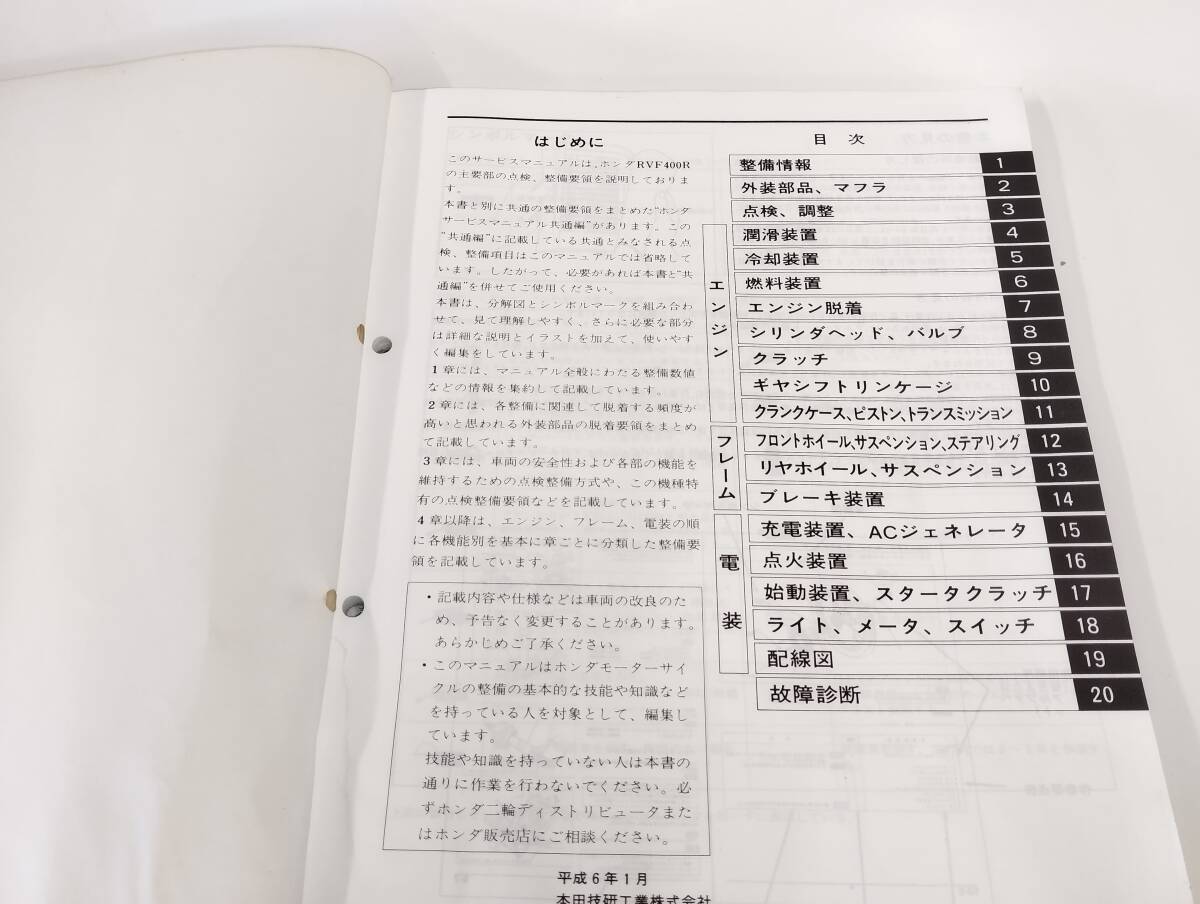 はじめに
このサービスマニュアルは、ホンダRVF400R
の主要部の点検、整備要領を説明しておりま
す。
本書と別に共通の整備要領をまとめた“ホンダ
サービスマニュアル共通編”があります。この
“共通編”に記載している共通とみなされる点
検、整備項目はこのマニュアルでは省略して
います。したがって、必要があれば本書と“共
通編”を併せてご使用ください。
本書は、分解図とシンボルマークを組み合わ
せて、見て理解しやすく、さらに必要な部分
は詳細な説明とイラストを加えて、使いやす
く編集をしています。
1章には、マニュアル全般にわたる整備数値
などの情報を集約して記載しています。
2章には、各整備に関連して脱着する頻度が
高いと思われる外装部品の脱着要領をまとめ
て記載しています。
3章には、車両の安全性および各部の機能を
維持するための点検整備方式や、この機種特
有の点検整備要領などを記載しています。
4章以降は、エンジン、フレーム、電装の順
に各機能別を基本に章ごとに分類した整備要
領を記載しています。
・記載内容や仕様などは車両の改良のた
め、予告なく変更することがあります。
あらかじめご了承ください。
・このマニュアルはホンダモーターサイ
クルの整備の基本的な技能や知識など
を持っている人を対象として、編集し
ています。
技能や知識を持っていない人は本書の
通りに作業を行わないでください。必
ずホンダ二輪ディストリビュータまた
はホンダ販売店にご相談ください。
平成6年1月
本田技研工業株式会社
目次
整備情報 1
外装部品、マフラ 2
点検、調整 3
エンジン
潤滑装置 4
冷却装置 5
燃料装置 6
エンジン脱着 7
シリンダヘッド、バルブ 8
クラッチ 9
ギヤシフトリンケージ 10
クランクケース、ピストン、トランスミッション 11
フレーム
フロントホイール、サスペンション、ステアリング 12
リヤホイール、サスペンション 13
ブレーキ装置 14
電装
充電装置、ACジェネレータ 15
点火装置 16
始動装置、スタータクラッチ 17
ライト、メータ、スイッチ 18
配線図 19
故障診断 20